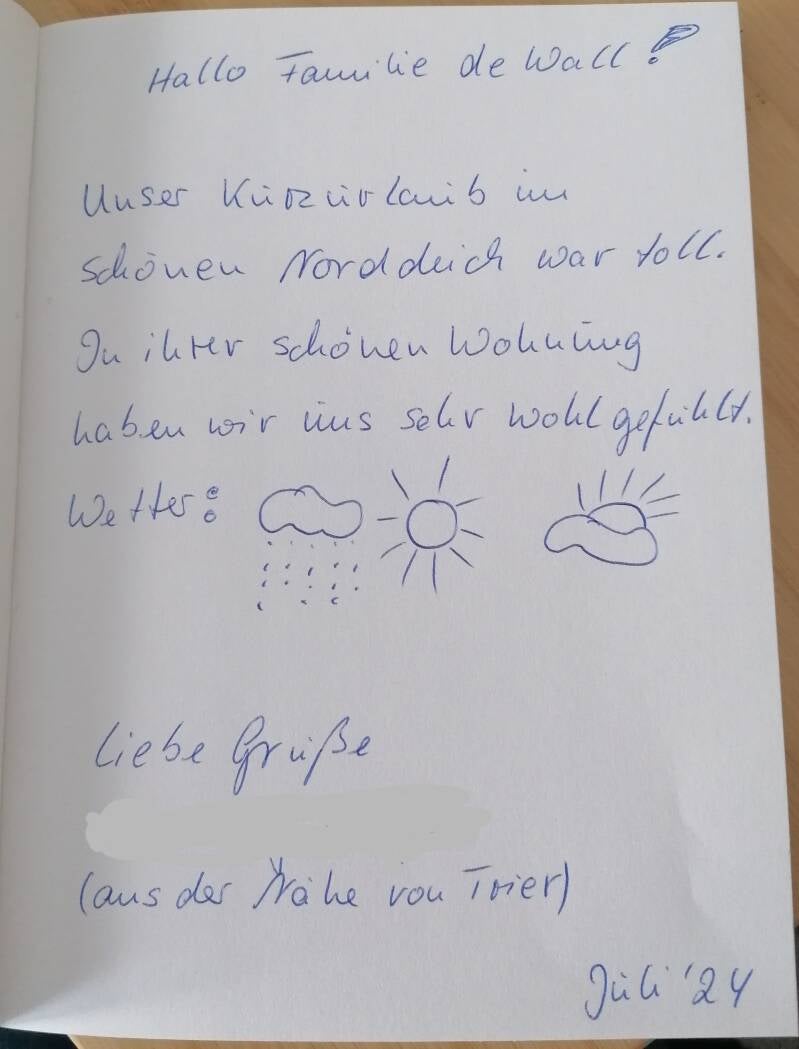 Hallo Familie de Wall!
Unser Kurzurlaub im
schönen Norddeich war toll.
In ihrer schönen Wohnung
haben wir uns sehr wohl gefühlt.
Wetter:
Liebe Grüße
(aus der Nähe von Trier)
Juli '24